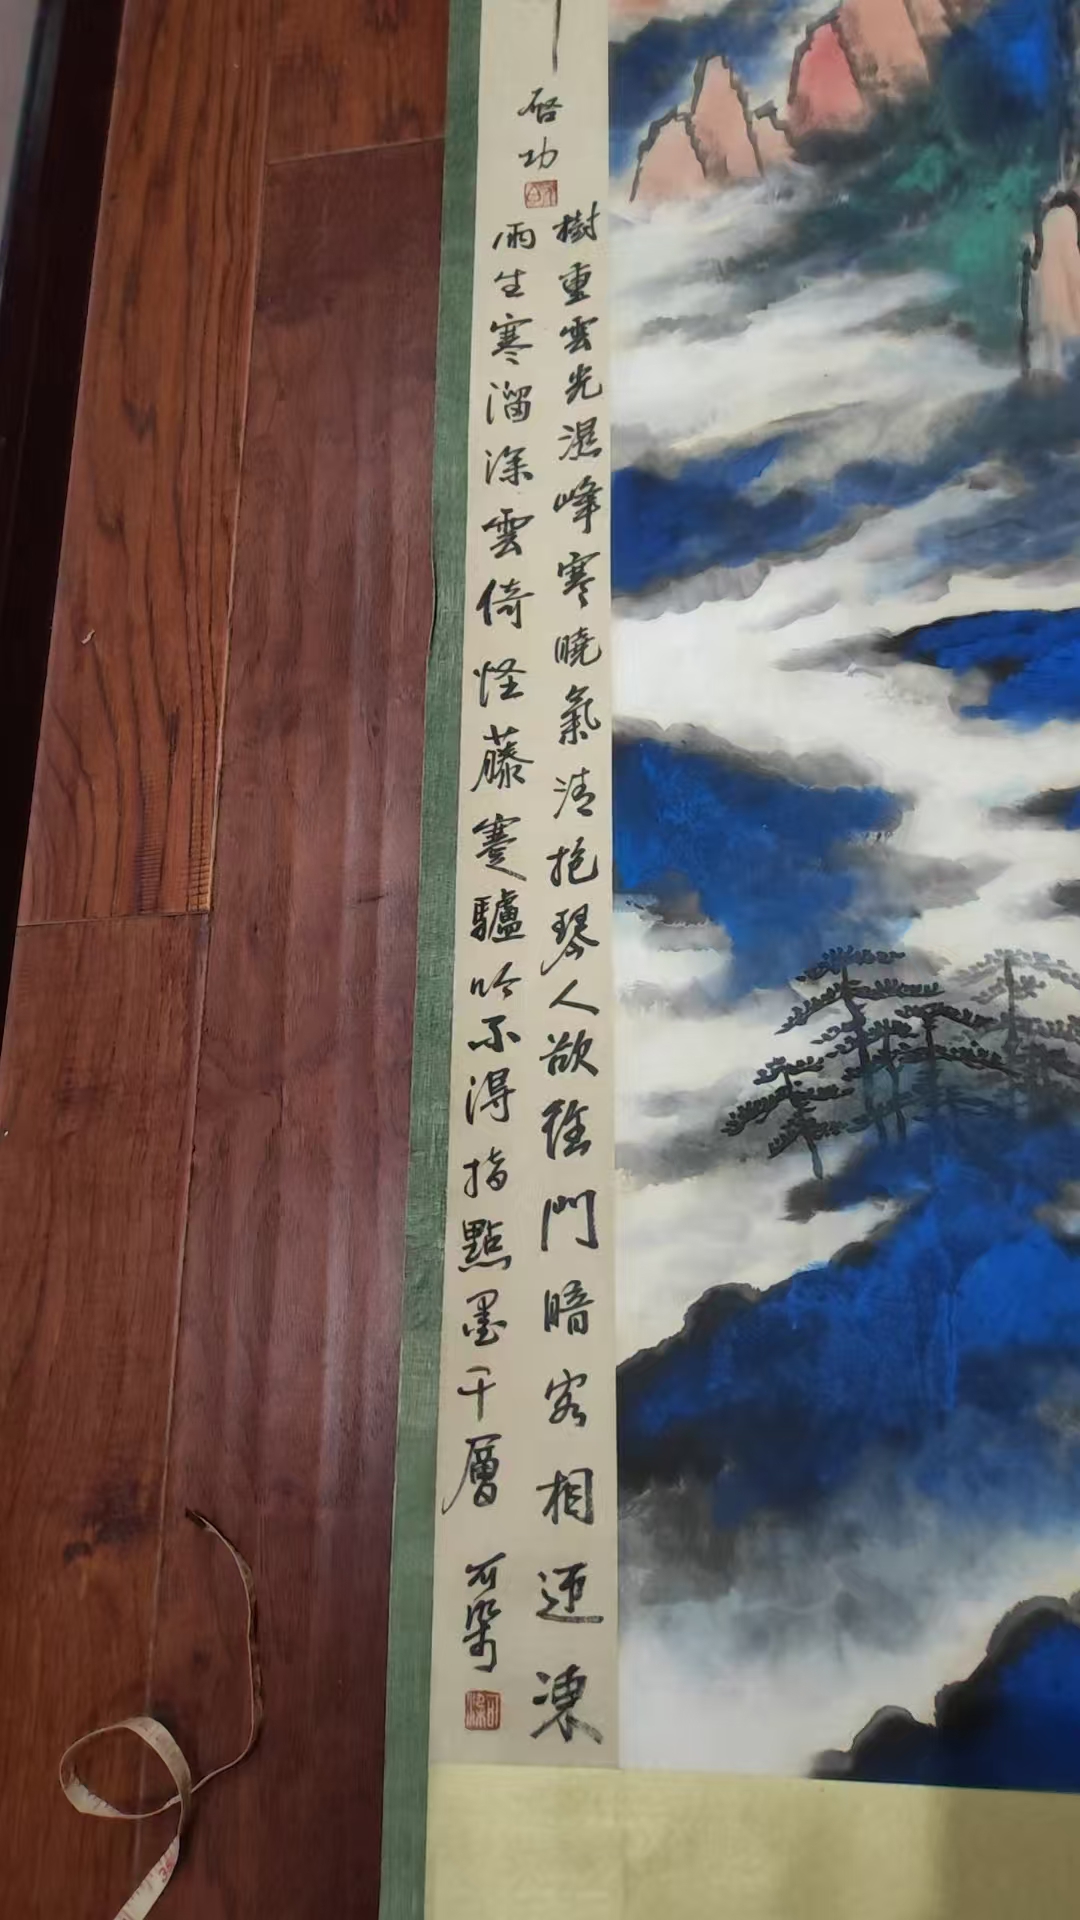 啓功
樹重雲光濕峰寒曉氣清抱琴人欲往門暗客相迎凍
雨生寒溜深雲倚怪藤蹇驢吟不得指點墨千層
可染
可染